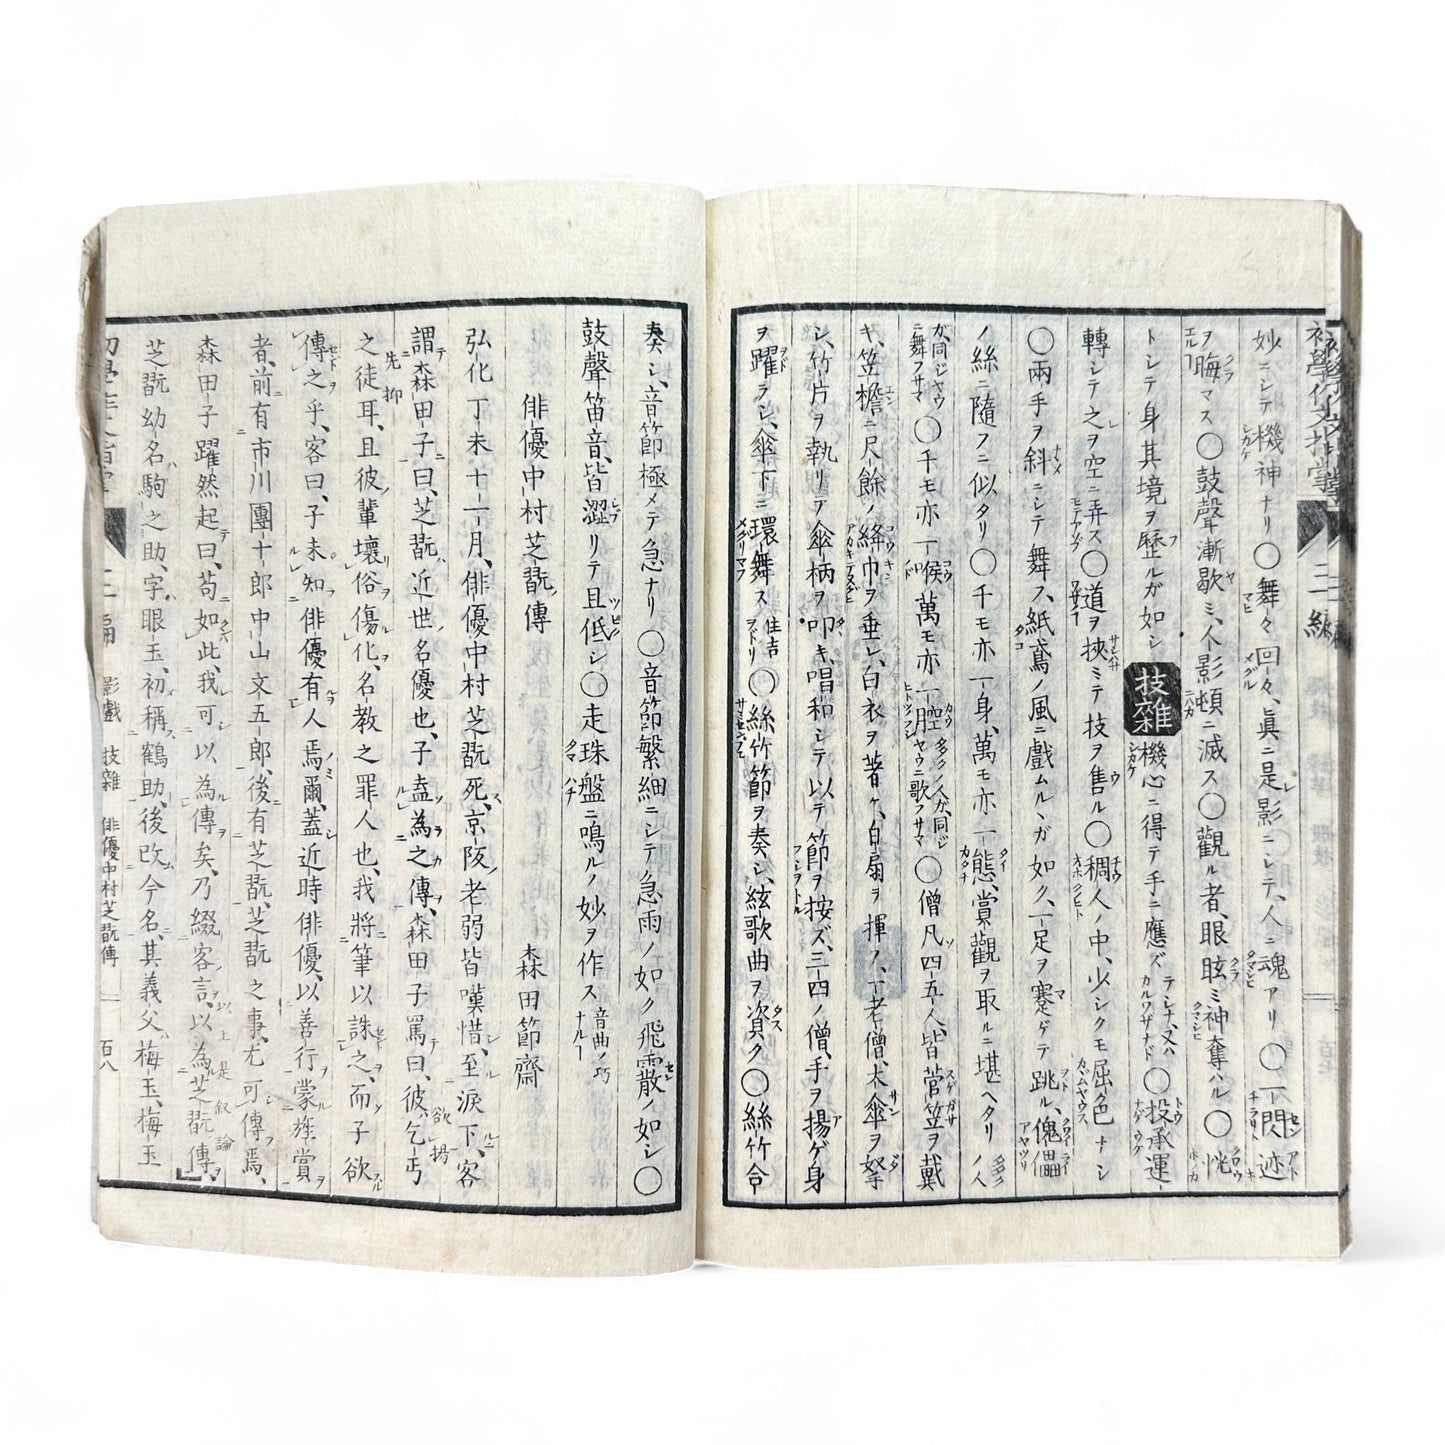 妙ニシテ機神ナリ〇舞々回々、眞ニ是影ニシテ、人ニ魂アリ〇一閃迹
ヲ晦マス〇鼓聲漸歇ミ、人影頓ニ滅ス〇觀ル者、眼眩ミ神奪ハル〇恍
トシテ身其境ヲ歴ルガ如シ 技雜 機心ニ得テ手ニ應ズ〇投承運
轉シテ之ヲ空ニ弄ス〇道ヲ挾ミテ技ヲ售ル〇稠人ノ中、少シクモ屈色ナシ
〇兩手ヲ斜ニシテ舞フ、紙鳶ノ風ニ戲ムルヽガ如ク、一足ヲ蹇ゲテ跳ル、傀儡
ノ絲ニ隨フニ似タリ〇千モ亦一身、萬モ亦一態、賞觀ヲ取ルニ堪ヘタリ
〇千モ亦一喉萬モ亦一腔〇僧凡四五人、皆菅笠ヲ戴
キ、笠檐ニ尺餘ノ絳巾ヲ垂レ、白衣ヲ著ケ、白扇ヲ揮フ、一老僧、大傘ヲ拏
シ、竹片ヲ執リテ傘柄ヲ叩キ、唱和シテ以テ節ヲ按ズ、三四ノ僧、手ヲ揚ゲ身
ヲ躍ラシ、傘下ニ環舞ス 住吉ヲドリ〇絲竹節ヲ奏シ、絃歌曲ヲ資ク〇絲竹合
奏シ、音節極メテ急ナリ〇音節繁細ニシテ急雨ノ如ク飛霰ノ如シ〇
鼓聲笛音、皆澀リテ且低シ〇走珠盤ニ鳴ルノ妙ヲ作ス 音曲ノ巧ナル
俳優中村芝翫傳 森田節齋
弘化丁未十一月、俳優中村芝翫死、京阪老弱皆嘆惜、至涙下、客
謂森田子曰、芝翫、近世名優也、子盍為之傳、森田子罵曰、彼乞丐
之徒耳、且彼輩壞俗傷化、名教之罪人也、我將筆以誅之、而子欲
傳之乎、客曰、子未知俳優有人焉爾、蓋近時俳優、以善行蒙旌賞
者、前有市川團十郎中山文五郎、後有芝翫、芝翫之事、尤可傳焉、
森田子躍然起曰、苟如此、我可以為傳矣、乃綴客言、以為芝翫傳、
芝翫幼名駒之助、字眼玉、初稱鶴助、後改今名、其義父梅玉、梅玉
初學作文指掌 二編 影戲 技雜 俳優中村芝翫傳 百八